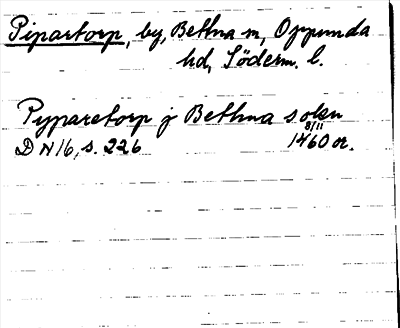 Pipartorp, by, Bettna sn, Oppunda
hd, Söderm. l.
Pyparetorp j Bethna sokn
8/11
DN 16, s. 226 1460 or.